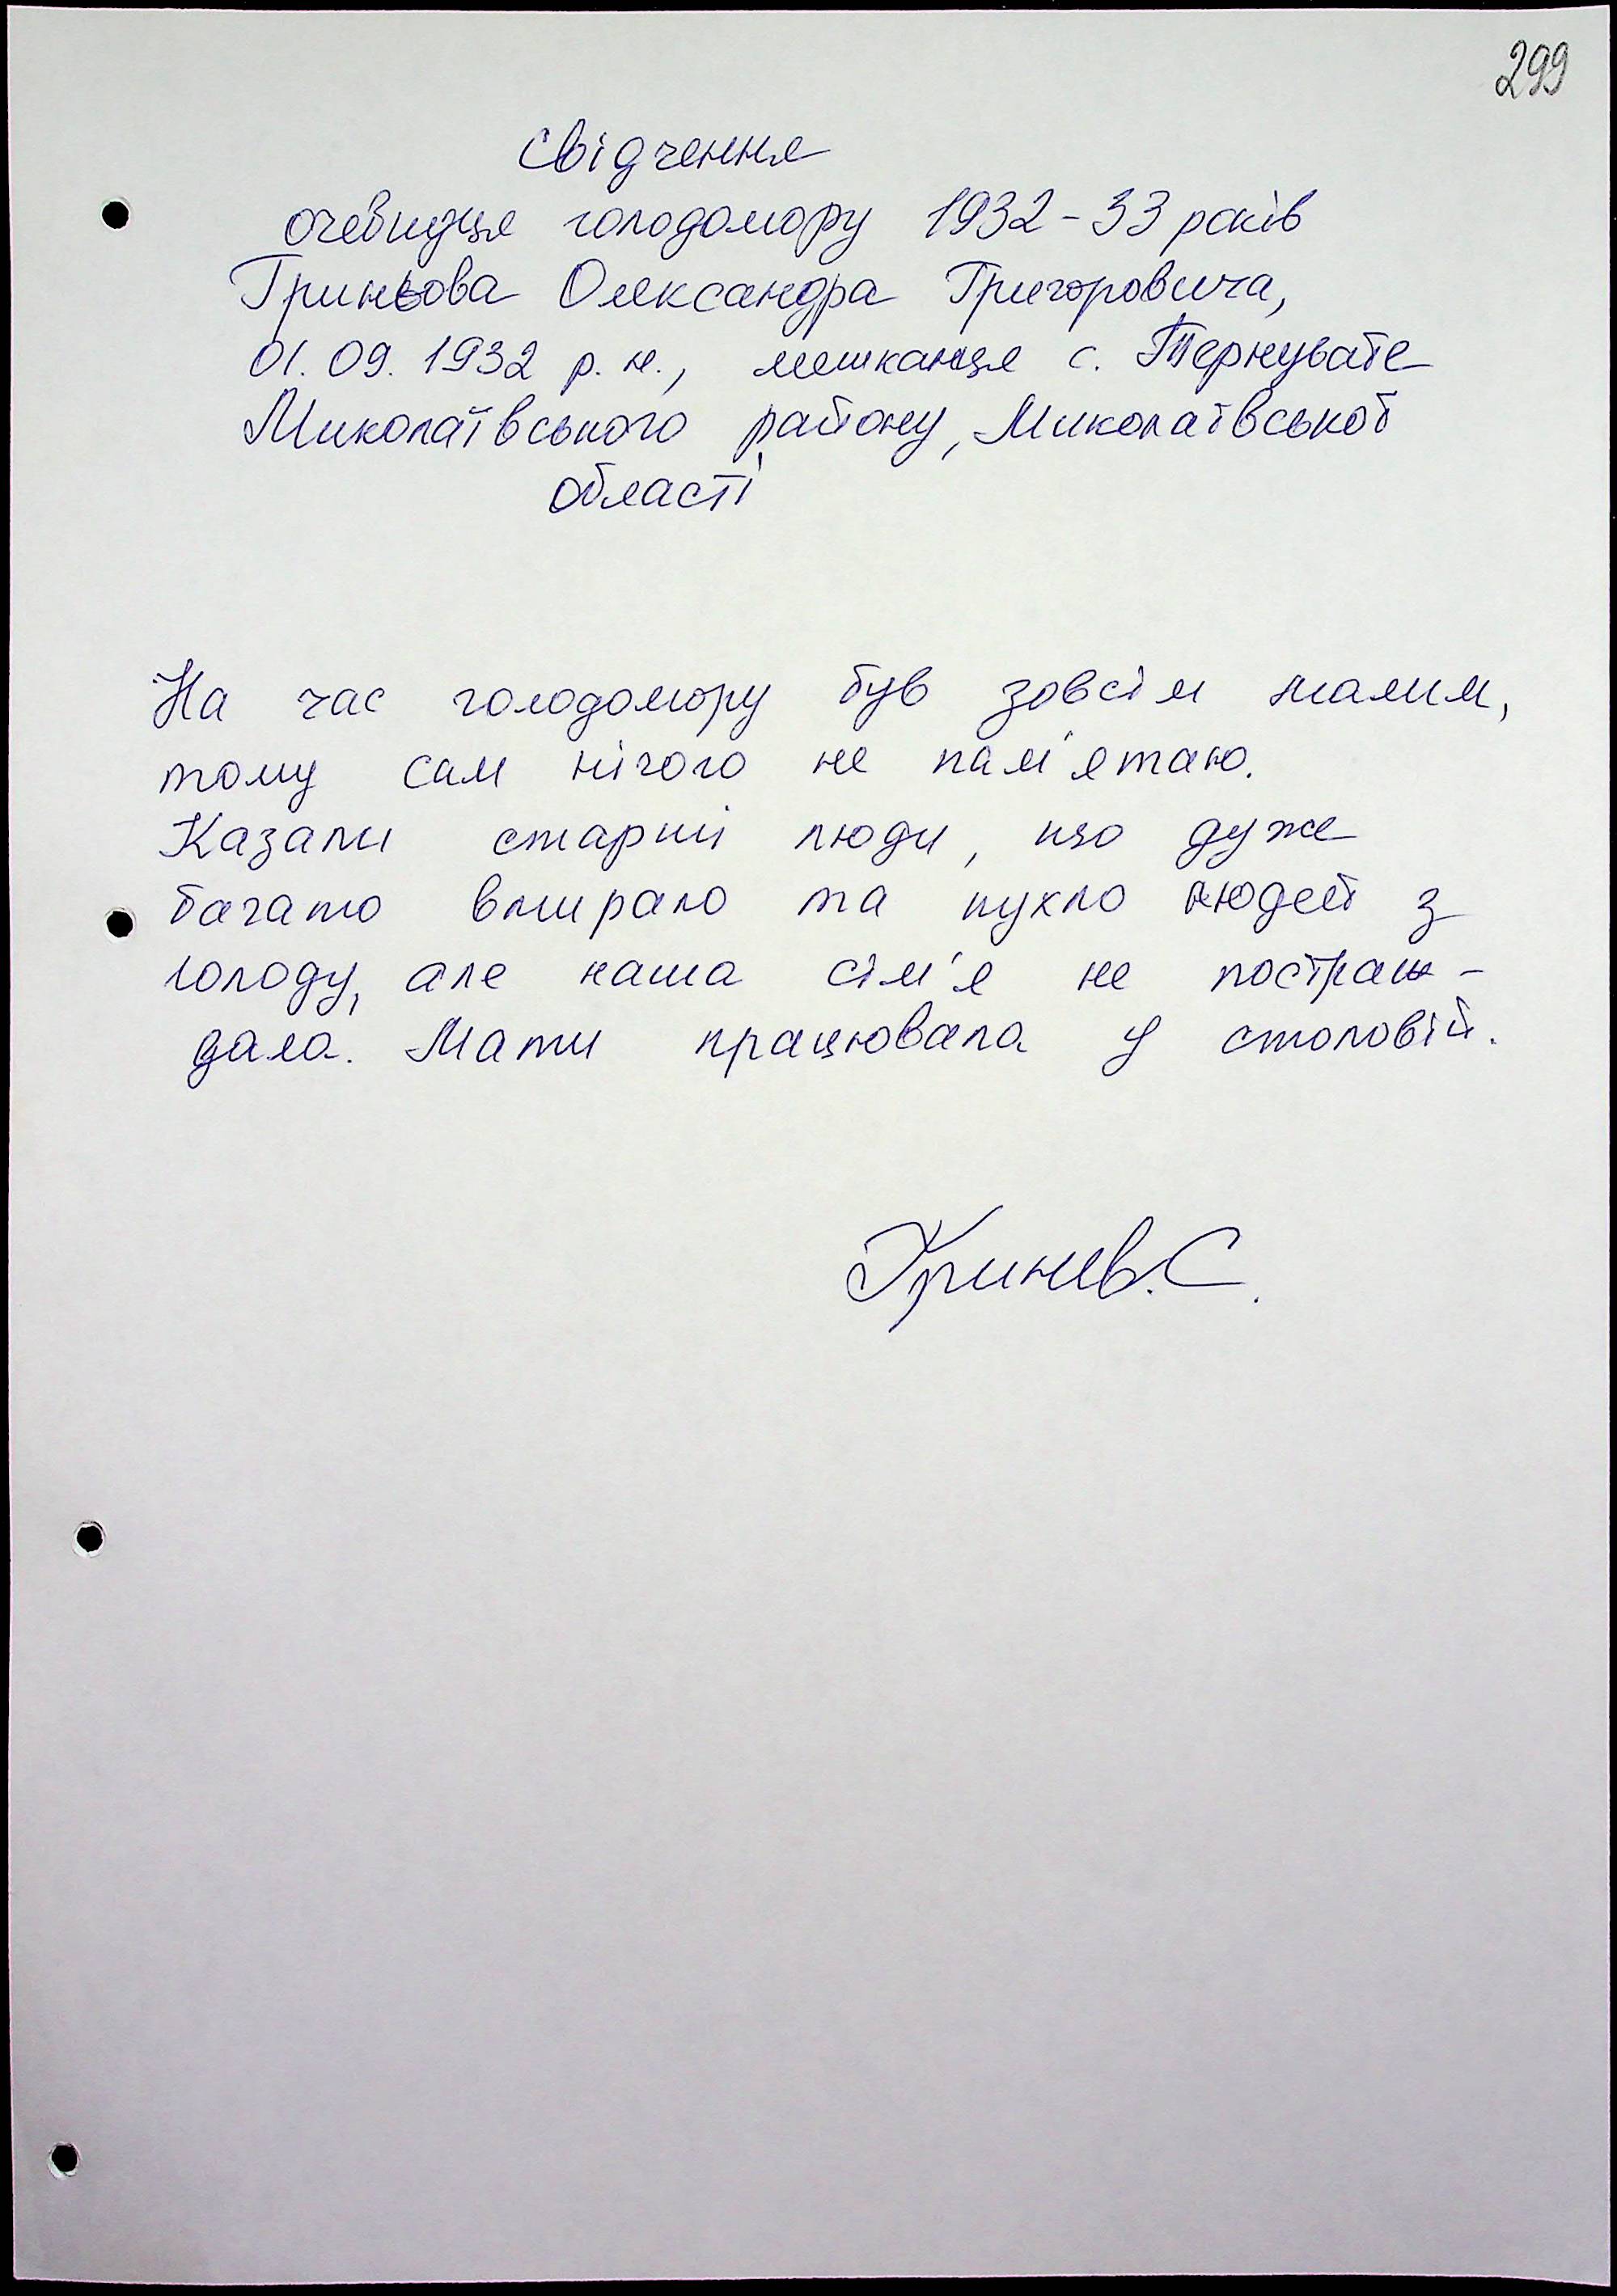 299
Свідчення
очевидця голодомору 1932-33 років
Гриньова Олександра Григоровича,
01.09.1932 р.н., мешканця с. Тернувате
Миколаївського району, Миколаївської
області
На час голодомору був зовсім малим,
тому сам нічого не пам'ятаю.
Казали старші люди, що дуже
багато вмирало та пухло людей з
голоду, але наша сім'я не постраж-
дала. Мати працювала у столовій.
Гринев.С.